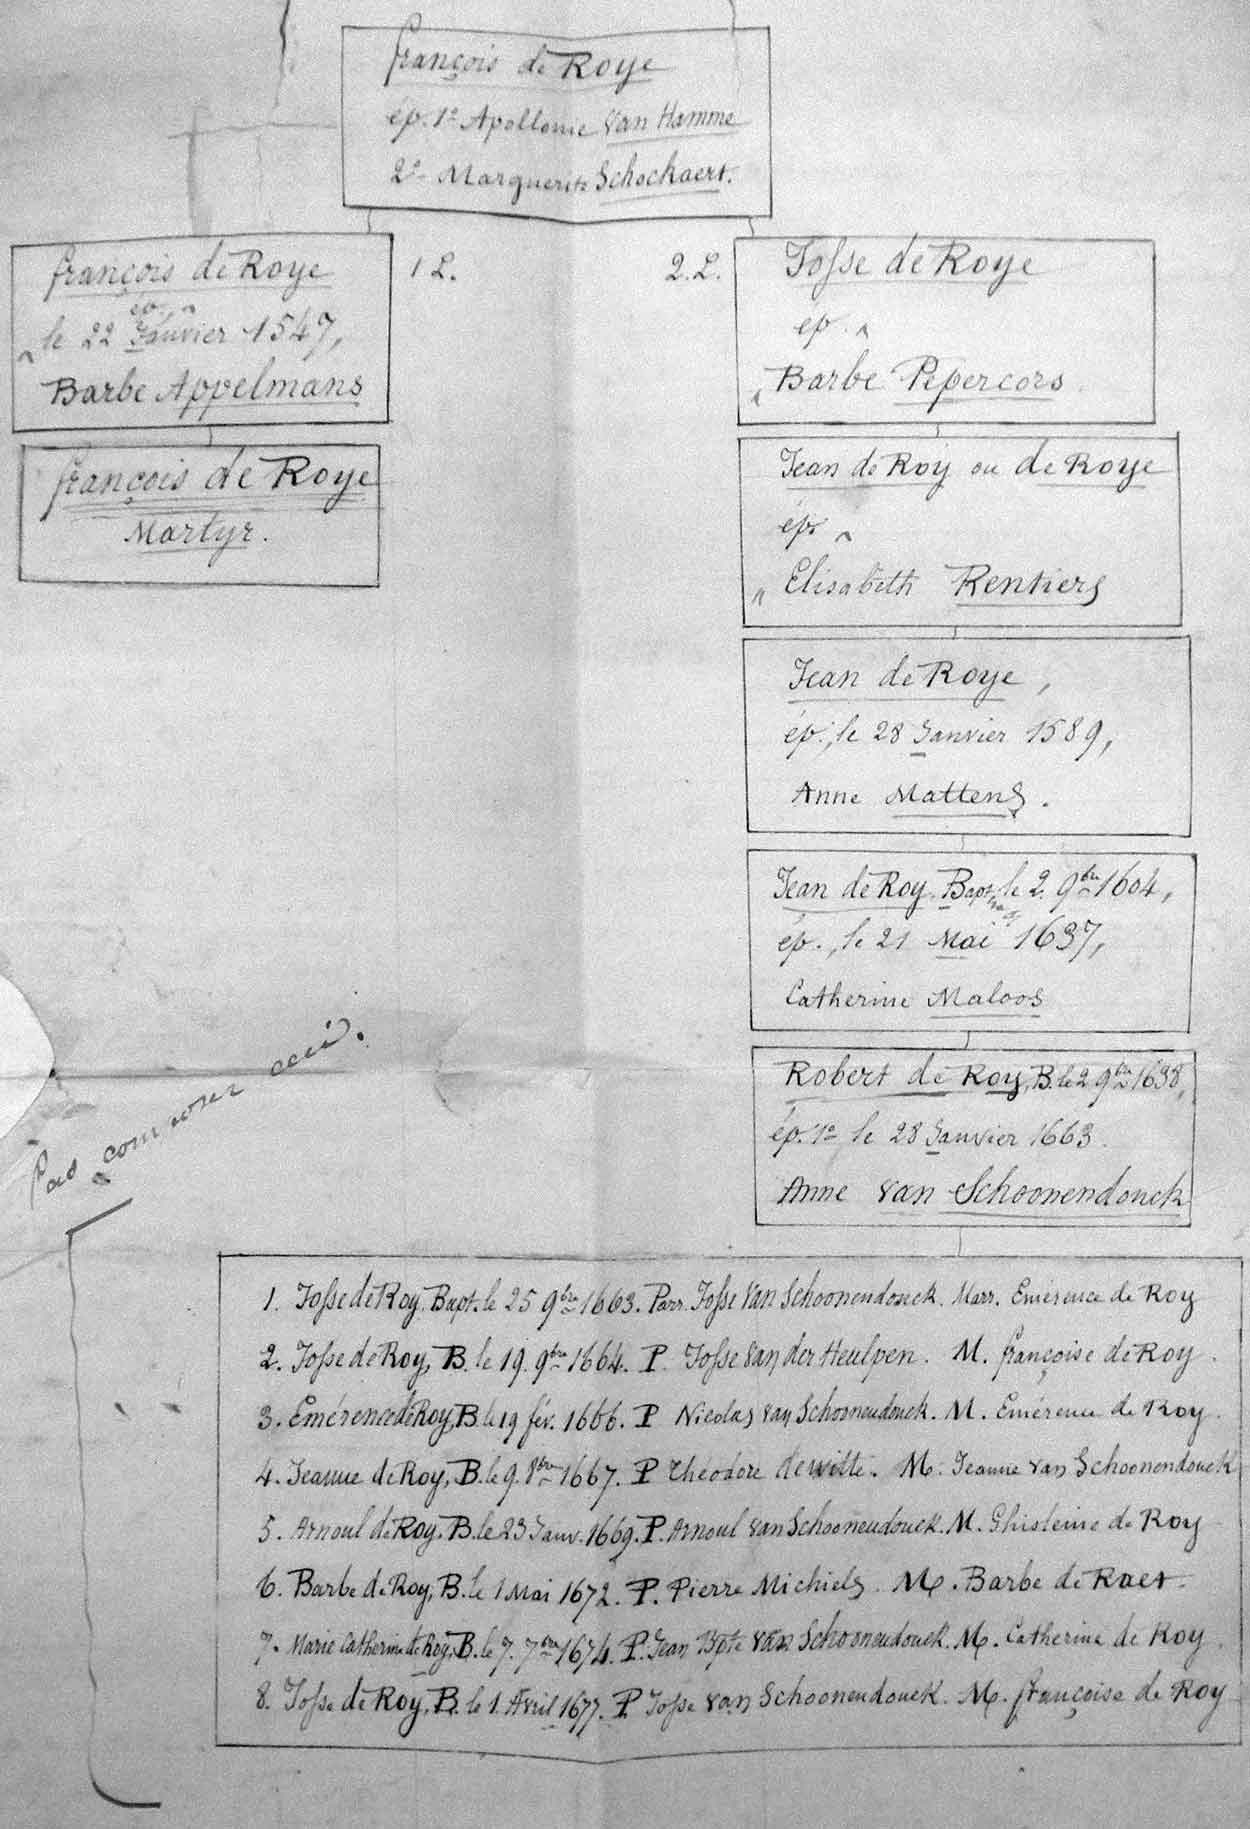 françois de Roye
ép. 1º Apollonie Van Hamme
2º Marguerite Schockaert.
françois de Roye
ép.
le 22 Janvier 1547,
Barbe Appelmans
1 L.
françois de Roye
Martyr.
2. L.
Josse de Roye
ép.
Barbe Pepercors
Jean de Roy ou de Roye
ép.
Elisabeth Rentiers
Jean de Roye,
ép., le 28 Janvier 1589,
Anne Mattens.
Jean de Roy. Bapt. le 2. 9bre 1604,
ép., le 21 Mai 1637,
Catherine Maloos
Robert de Roy, B. le 2 9bre 1638,
ép. 1º le 28 Janvier 1663.
Anne van Schoonendonck
Pas ceci.
1. Josse de Roy. Bapt. le 25 9bre 1663. Parr. Josse Van Schoonendonck. Marr. Emérence de Roy
2. Josse de Roy, B. le 19. 9bre 1664. P. Josse Van der Heulpen. M. françoise de Roy.
3. Emérence de Roy, B. le 19 fév. 1666. P Nicolas van Schoonendonck. M. Emérence de Roy.
4. Jeanne de Roy, B. le 9. 8bre 1667. P Théodore de Witte. M. Jeanne van Schoonendonck
5. Arnoul de Roy. B. le 23 Janv. 1669. P. Arnoul van Schoonendonck. M. Ghisleine de Roy
6. Barbe de Roy, B. le 1 Mai 1672. P. Pierre Michiels. M. Barbe de Raet.
7. Marie Catherine de Roy, B. le 7. 7bre 1674. P. Jean Bpte van Schoonendonck. M. Catherine de Roy.
8. Josse de Roy, B. le 1. Avril 1677. P. Josse van Schoonendonck. M. françoise de Roy